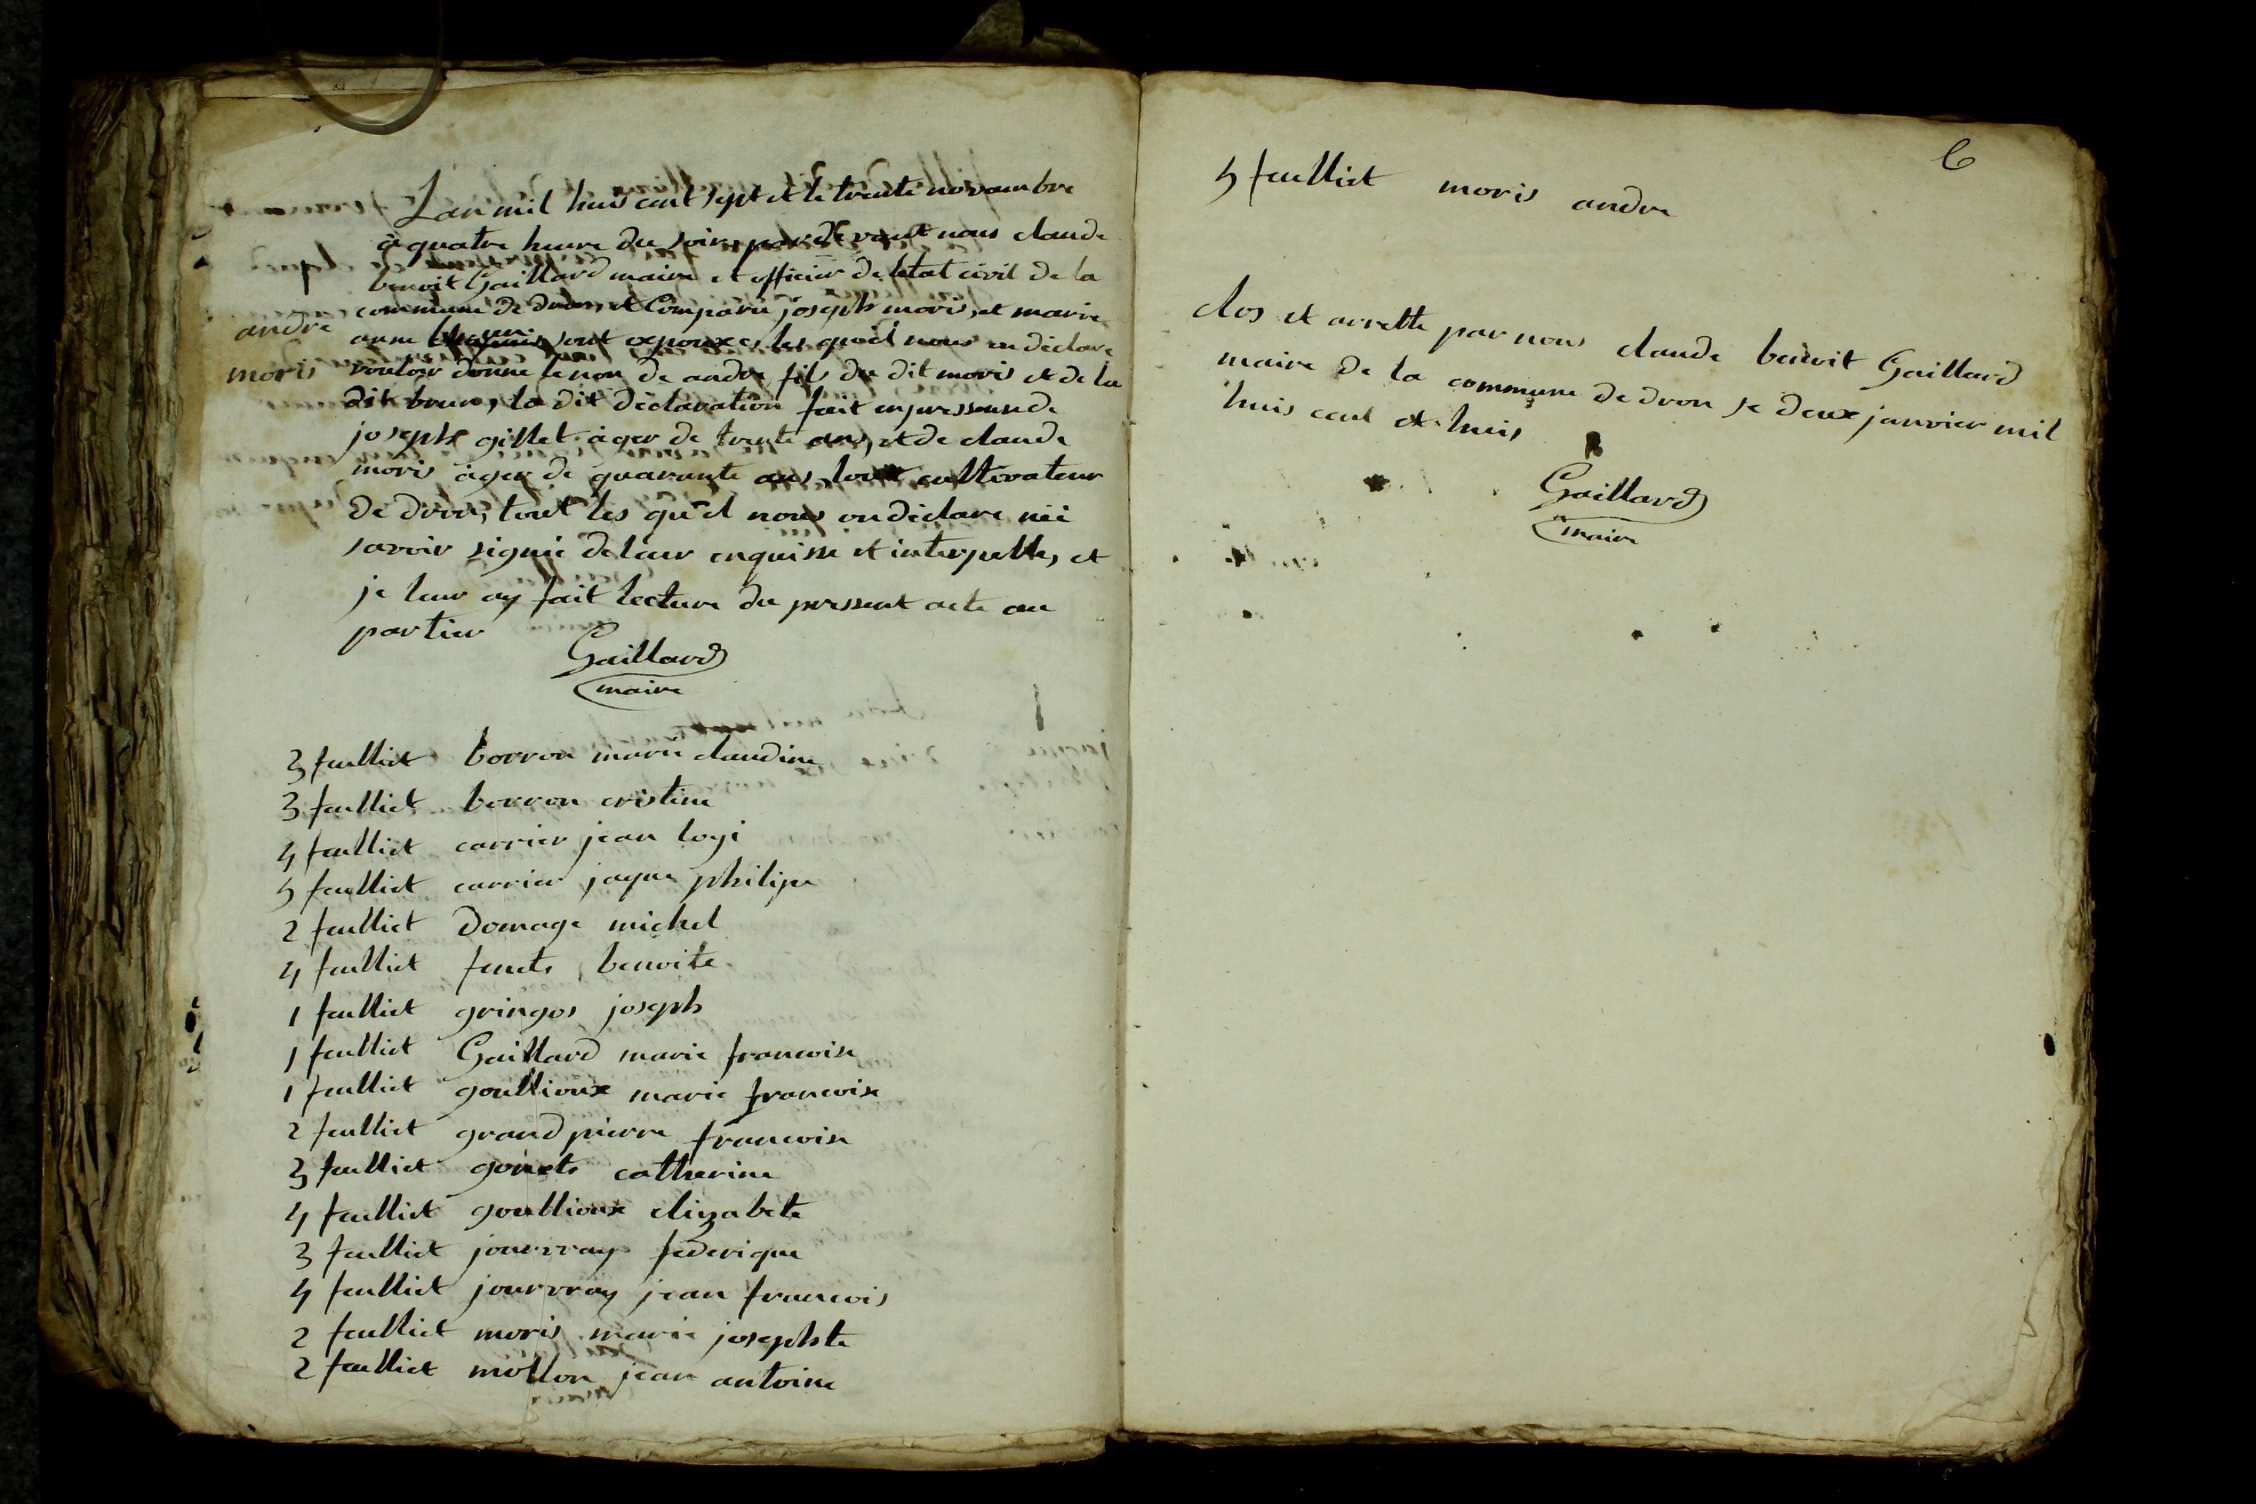 Lan mil huis cent sept et le trente novambre
à quatre heure du soir, par devant nous claude
benoit Gaillard maire et officier de letat civil de la
commune de drom, et Comparu joseph moris, et marie
anne sont expouxes les quel nous on déclare
vouloir donne le non de andre fils du dit moris et de la
dit brun, la dit déclaration fait enpressance de
joseph gillet àger de trente ans, et de claude
moris àger de quarante ans, tout cultivateur
de drom, tout les quel nous on déclare néé
savoir signié de leur enquisse et interpelle, et
je leur ay fait lecture du pressent acte au
partier
Gaillard
maire
andre
moris
3 feulliet borron marie claudine
3 feulliet borron cristine
4 feulliet carrier jean logi
5 feulliet carrier jaque philipe
2 feulliet domage michel
4 feulliet benoite
1 feulliet gringos joseph
1 feulliet Gaillard marie francoise
1 feulliet goullioux marie francoise
2 feulliet grand pierre francoise
3 feulliet gonets catherine
4 feulliet goullioux elizabete
3 feulliet jourvray federique
4 feulliet jourvray jean francois
2 feulliet moris marie josephte
2 feulliet mollon jean antoine
6
5 feulliet moris andre
clos et arrette par nous claude benoit Gaillard
maire de la commune de drom le deux janvier mil
huis cent et huis
Gaillard
maire